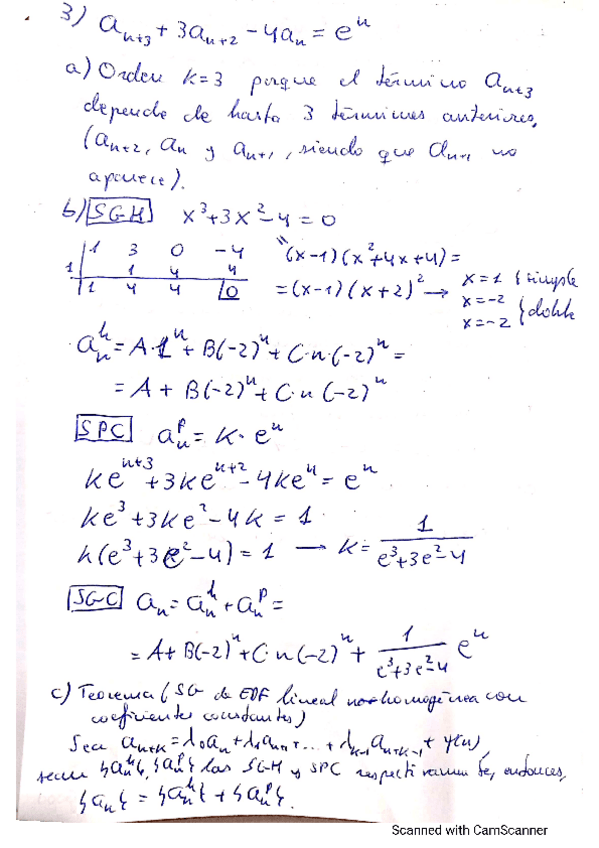 3) a_{n+3} + 3a_{n+2} - 4a_n = e^n
a) Orden k=3 porque el término a_{n+3}
depende de hasta 3 términos anteriores,
(a_{n+2}, a_n y a_{n+1}, siendo que a_{n+1} no
aparece).
b) SGH x^3+3x^2-4=0
1 3 0 -4 " (x-1)(x^2+4x+4) =
1 1 4 4 = (x-1)(x+2)^2 → x=1 } simple
1 4 4 0 x=-2 } doble
x=-2
a_n^h = A·1^n + B(-2)^n + C·n·(-2)^n =
= A + B(-2)^n + C·n(-2)^n
SPC a_n^p = k·e^n
ke^{n+3} + 3ke^{n+2} - 4ke^n = e^n
ke^3 + 3ke^2 - 4k = 1
k(e^3+3e^2-4) = 1 → k = 1/(e^3+3e^2-4)
SGC a_n = a_n^h + a_n^p =
= A + B(-2)^n + C·n(-2)^n + 1/(e^3+3e^2-4) e^n
c) Teorema (SG de EDF lineal no homogénea con
coeficientes constantes)
Sea a_{n+k} = λ_0a_n + λ_1a_{n+1} + ... + λ_{k-1}a_{n+k-1} + φ(n),
sean {a_n^h}, {a_n^p} las SGH y SPC respectivamente, entonces,
{a_n} = {a_n^h} + {a_n^p}.
Scanned with CamScanner